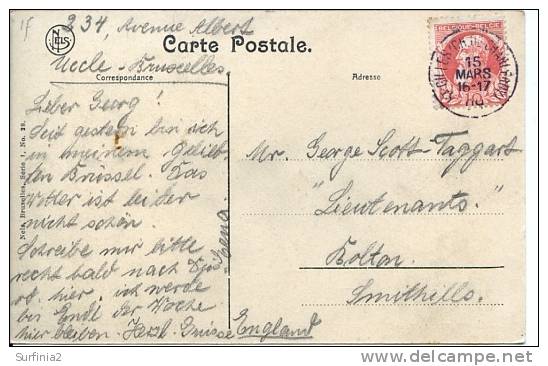 234, Avenue Albert
Carte Postale.
Uccle - Bruxelles.
Correspondance
Adresse
NELS
BELGIQUE-BELGIË
15
MARS
16-17
Lieber Georg!
Seit gestern bin ich
in meinem Gelieb-
ten Brüssel. Das
Wetter ist leider
nicht schön.
Schreibe mir bitte
recht bald nach
hier. ich werde
bis Endl der Woche
hier bleiben. Herzl. Grüsse
Nels, Bruxelles, Serie 1, No. 28.
Mr. George Scott-Taggart
"Lieutenants."
Bolton.
Smithills.
England
Surfinia2
delcampe.net